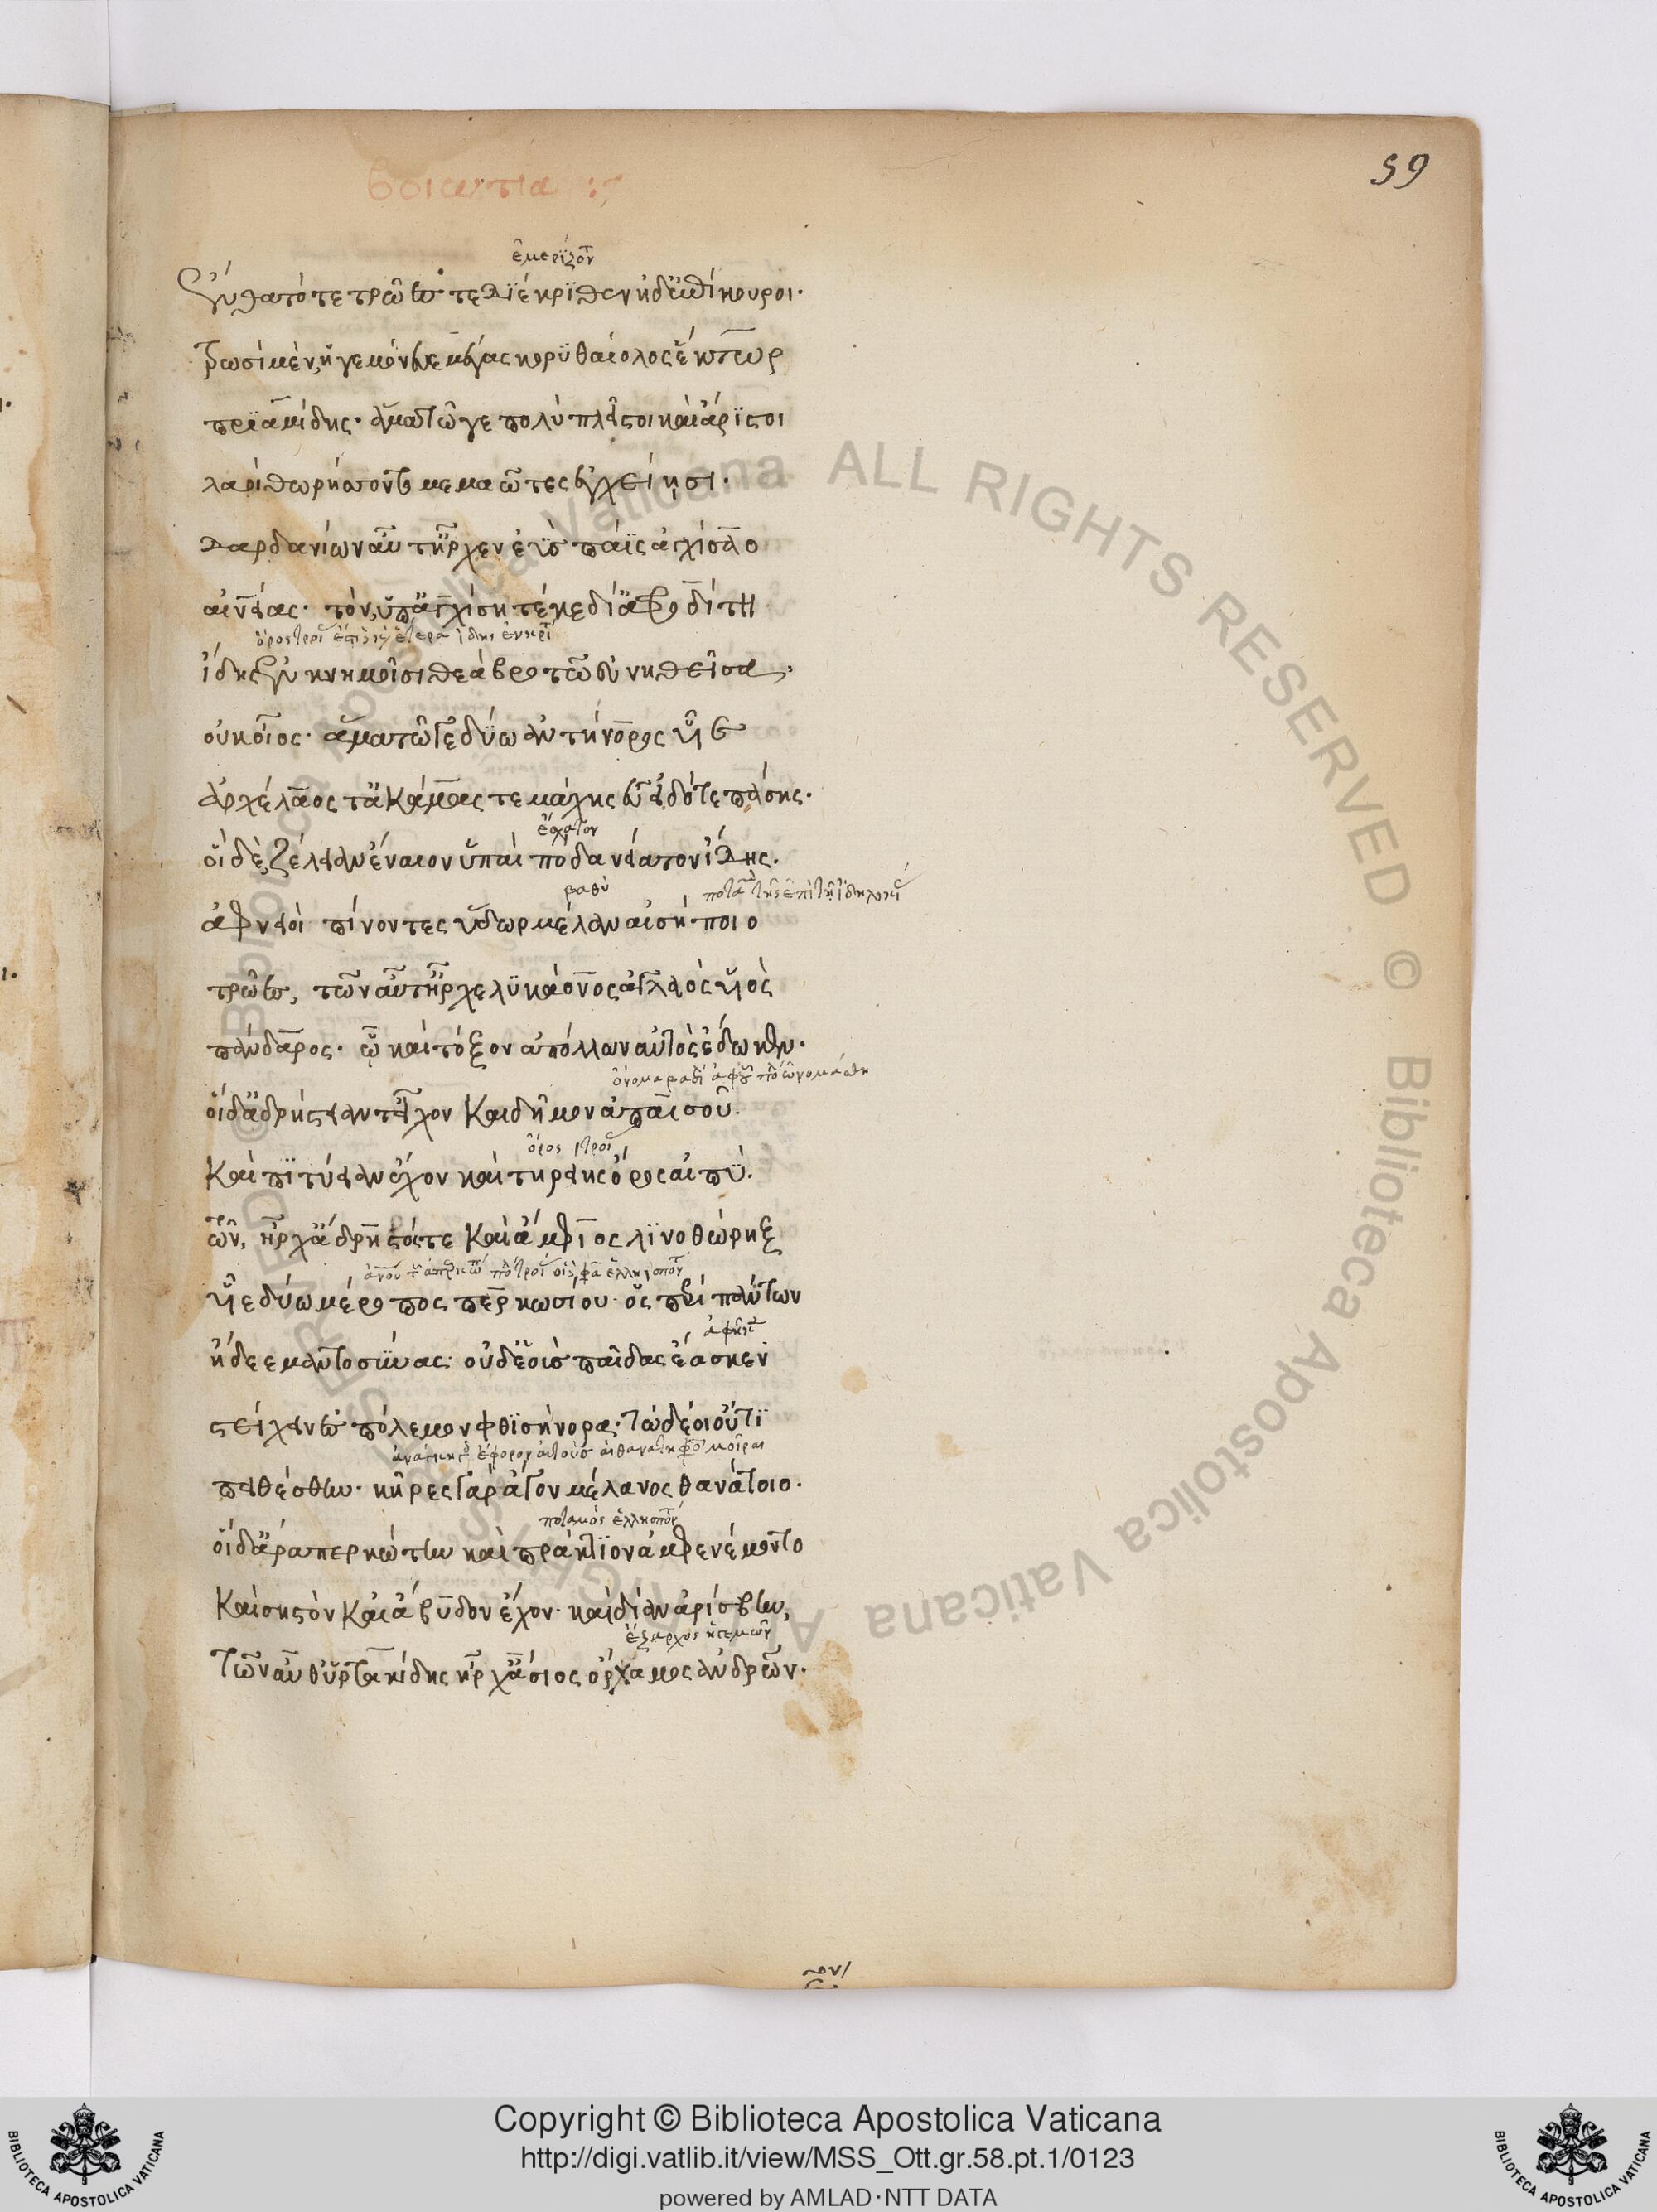 59
βοιωτία :~
ἐμερίζοντο
ἔνθα τότε τρῶές τε διέκριθεν ἠδ' ἐπίκουροι·
τρωσὶ μὲν, ἡγεμόνευε μέγας κορυθαίολος ἕκτωρ
πριαμίδης· ἅμα τῶ γε πολὺ πλεῖστοι καὶ ἄριστοι
λαοὶ θωρήσσοντο μεμαῶτες ἐγχείησι·
δαρδανίων αὖτ' ἦρχεν ἐῢς πάϊς ἀγχίσαο
αἰνείας· τὸν, ὑπ' ἀγχίση τέκε δῖ' ἀφροδίτη
ἴδης ἐν κνημοῖσι θεὰ βροτῶ εὐνηθεῖσα,
οὐκ οἶος· ἅμα τῶγε δύω ἀντήνορος υἷε
ἀρχέλοχός τ' ἀκάμας τε μάχης εὖ εἰδότε πάσης·
ἔσχατον
οἳ δὲ ζέλειαν ἔναιον ὑπαὶ πόδα νείατον ἴδης·
βαθὺ
ἀφνειοὶ πίνοντες ὕδωρ μέλαν αἰσήποιο
τρῶες, τῶν αὖτ' ἦρχε λυκάονος ἀγλαὸς υἱὸς
πάνδαρος· ᾧ καὶ τόξον ἀπόλλων αὐτὸς ἔδωκεν·
οἳ δ' ἀδρήστειάν τ' εἶχον καὶ δῆμον ἀπαισοῦ·
ὄρος
καὶ πιτύειαν ἔχον καὶ τηρείης ὄρος αἰπύ·
τῶν, ἦρχ' ἄδρηστός τε καὶ ἄμφιος λινοθώρηξ
υἷε δύω μέροπος περκωσίου· ὃς περὶ πάντων
ᾔδεε μαντοσύνας· οὐδὲ οἷς παῖδας ἔασκεν
στείχειν ἐς πόλεμον φθισήνορα· τὼ δέ οἱ οὔτι
πειθέσθην· κῆρες γὰρ ἄγον μέλανος θανάτοιο·
ποταμὸς
οἳ δ' ἄρα περκώτην καὶ πράκτιον ἀμφενέμοντο
καὶ σηστὸν καὶ ἄβυδον ἔχον· καὶ δῖαν ἀρίσβην,
ἔξαρχος ἡγεμὼν
τῶν αὖθ' ὑρτακίδης ἦρχ' ἄσιος ὄρχαμος ἀνδρῶν·
Copyright © Biblioteca Apostolica Vaticana
http://digi.vatlib.it/view/MSS_Ott.gr.58.pt.1/0123
powered by AMLAD·NTT DATA
BIBLIOTECA APOSTOLICA VATICANA
BIBLIOTECA APOSTOLICA VATICANA